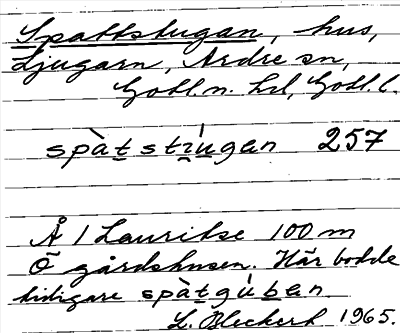 Spattstugan, hus,
Ljugarn, Ardre sn,
Gotl. n. hd, Gotl. l.
spàtstúgan 257
Å 1 Lauritse 100 m
Ö gårdshusen. Här bodde
tidigare spàtgúban
L. Bleckert 1965.